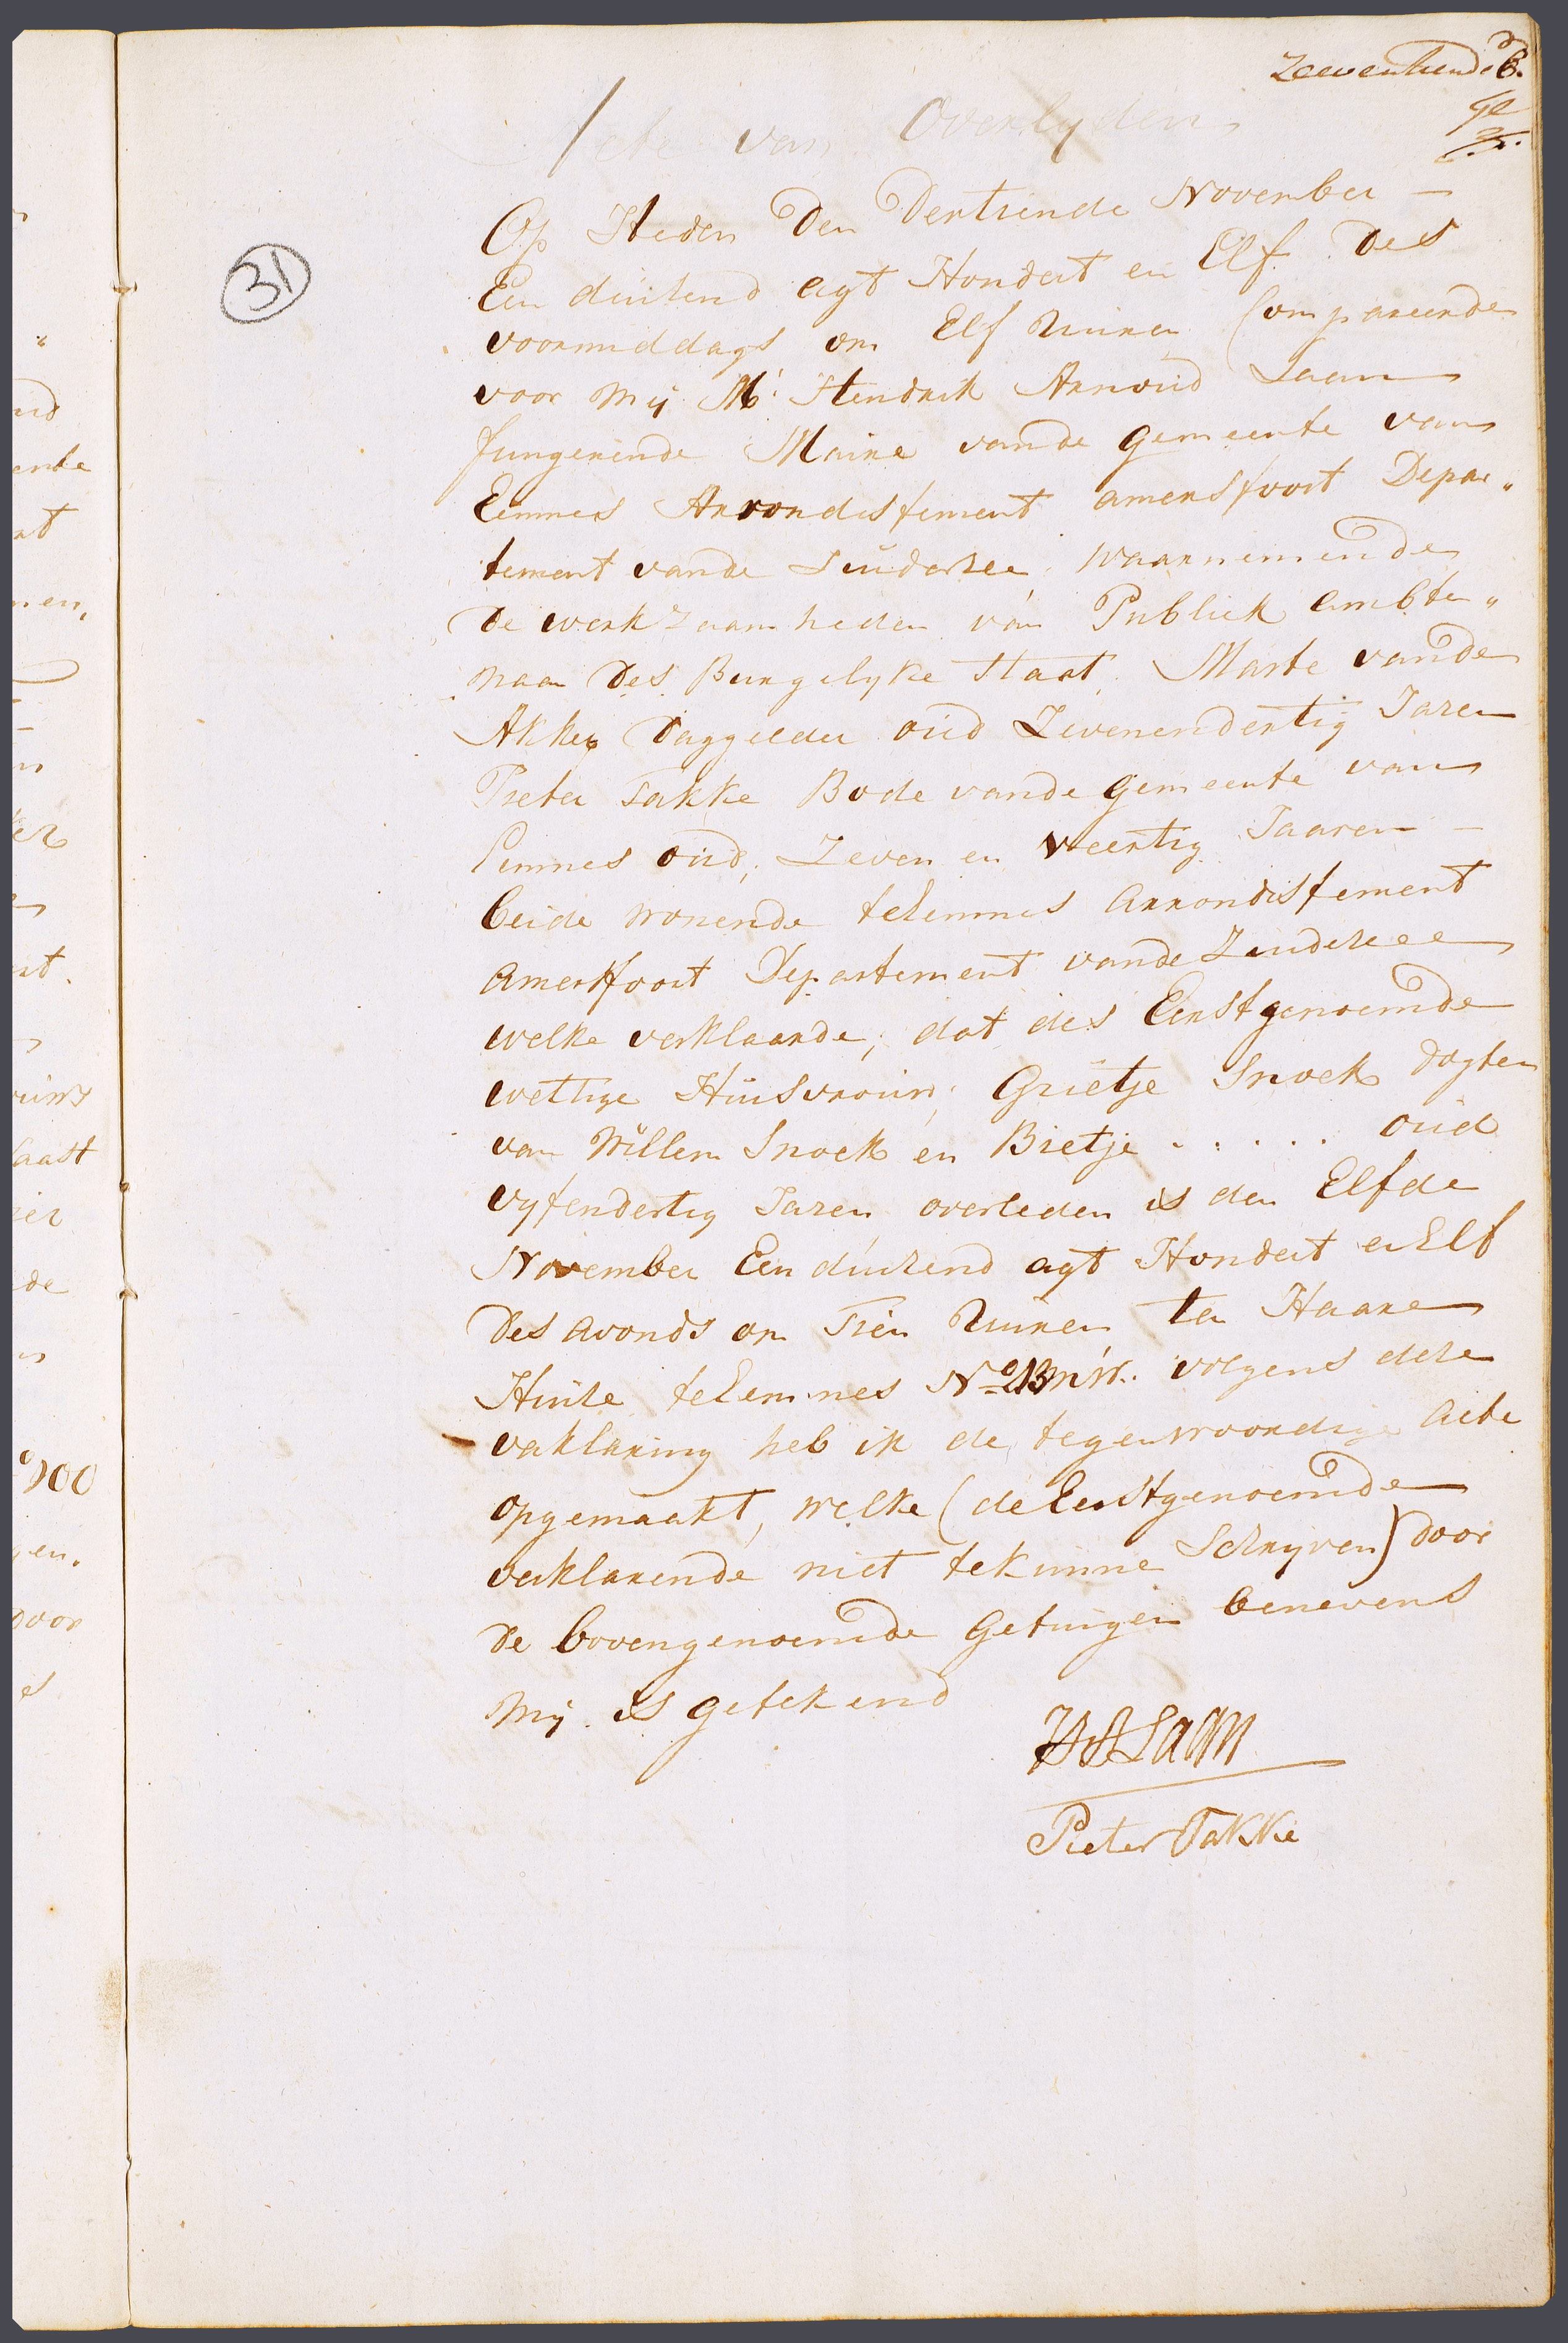 Zeeventiende B.
Acte van Overlyden
31
Op Heden Den Dertiende November —
Een duizend agt Hondert en Elf Des
voormiddags om Elf Uuren Compareerde
voor Mij Mr. Hendrik Arnoud Laan
fungerende Maire vande Gemeente van
Eemnes Arrondissement amersfoort Depar„
tement vande Suiderzee, Waarnemende
De werkzaamheden van Publiek Ambte„
naar Des Burgelyke Staat, Marte vande
Akker Daggelder oud Zevenendertig Jaren
Pieter Takke Bode vande Gemeente van
Eemnes oud, Zeven en Veertig Jaaren —
beide wonende teEemnes Arrondissement
Amersfoort Departement vande Zuiderzee
welke verklaarde, dat des Eerstgenoemde
wettige Huisvrouw, Grietje Snoek dogter
van Willem Snoek en Bietje . . . . . . oud
vyfendertig Jaren overleden is den Elfde
November Een duizend agt Hondert en Elf
Des avonds om Tien Uuren ten Haare
Huize teEemnes No 23 volgens deze
verklaring heb ik de tegenwoordige Acte
opgemaakt, welke (de Eerstgenoemde
verklarende niet tekunne Schryven) door
De bovengenoemde Getuigen benevens
Mij is getekend
HA Laan
Pieter Takke
nd
ente
at
nen,
ez
nt.
uws
laast
ier
de
o 100
gen.
door
es